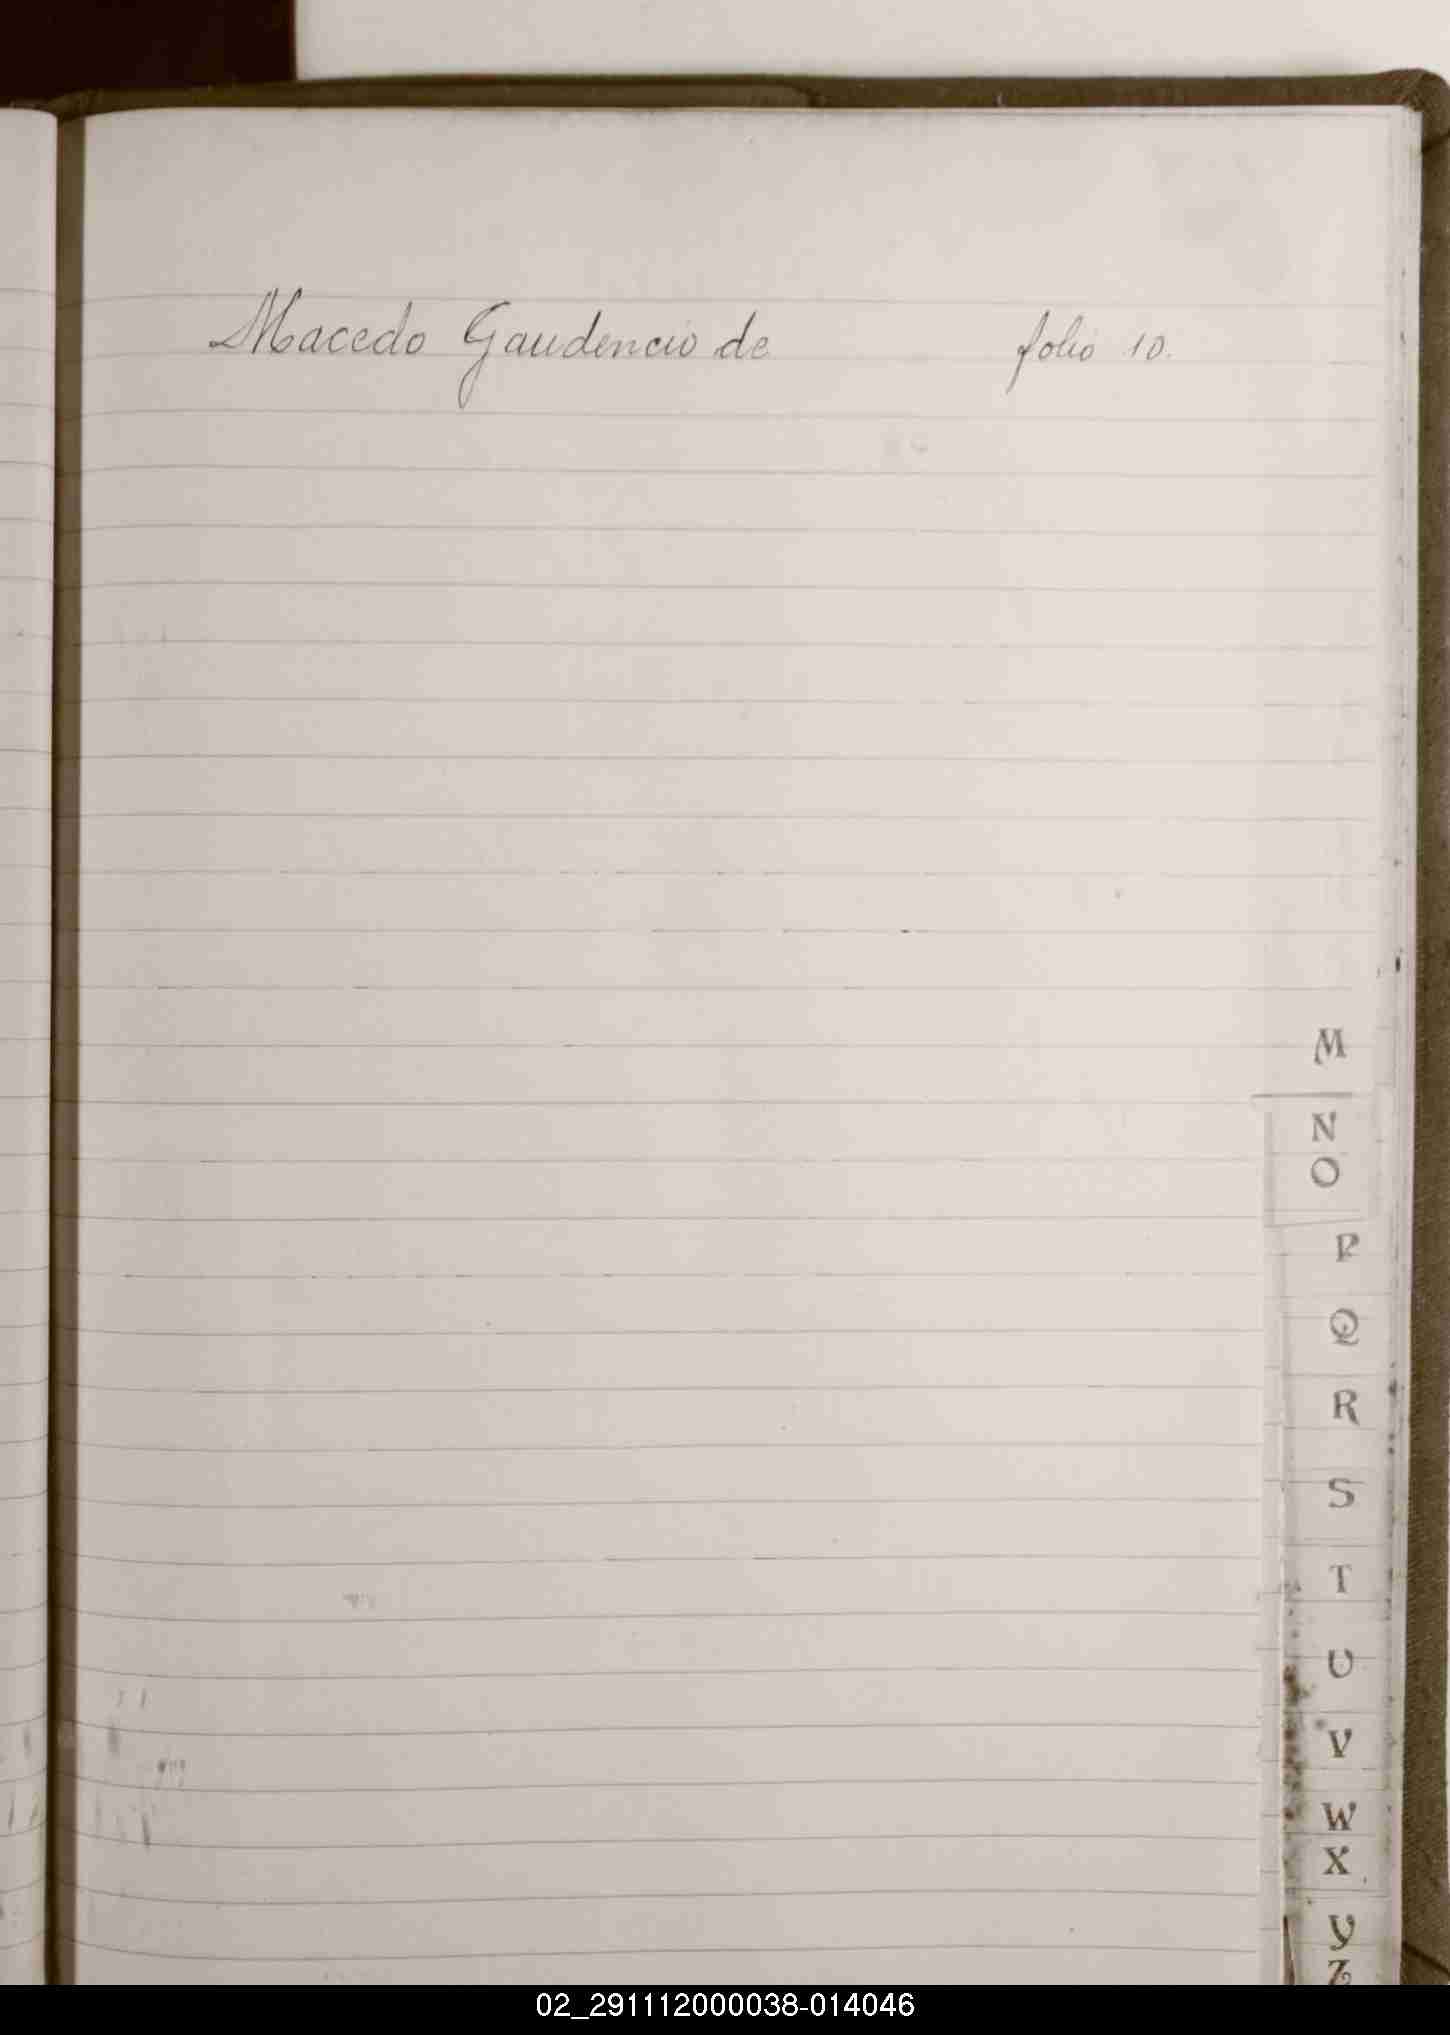 Macedo Gaudencio de folio 10.
M
N
O
P
Q
R
S
T
U
V
W
X
Y
Z
02_291112000038-014046